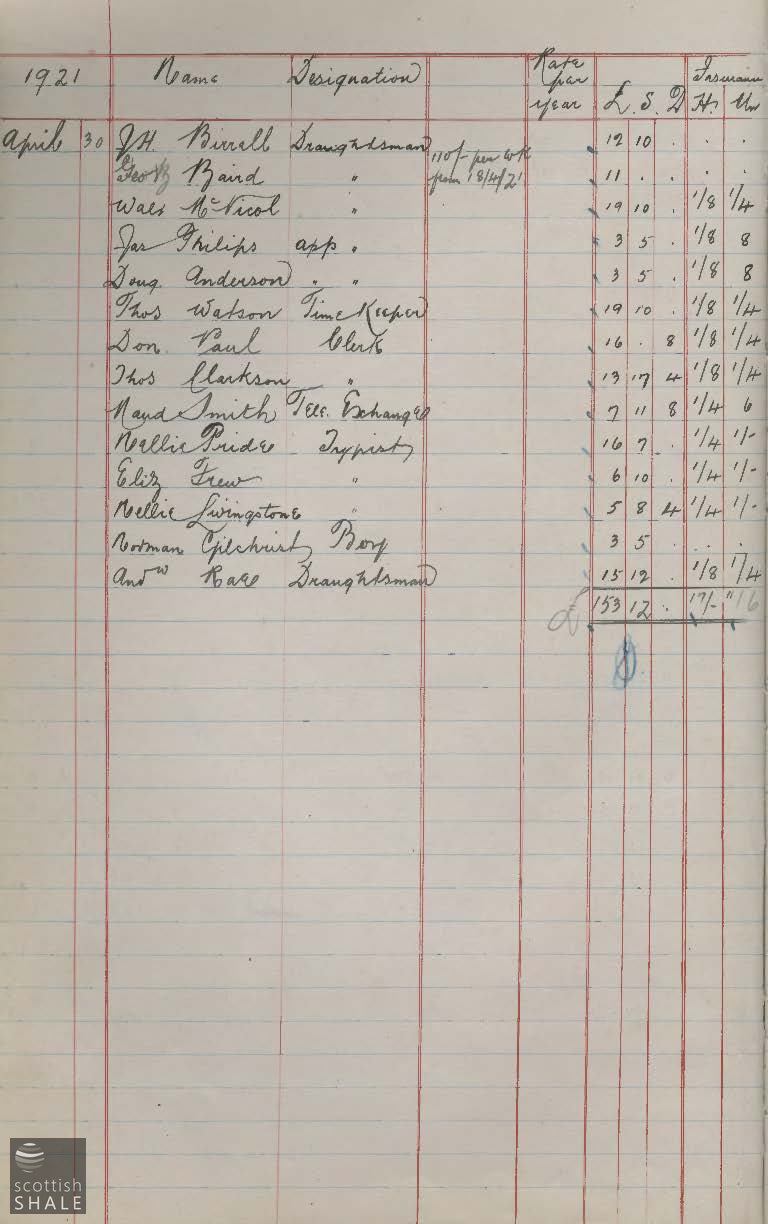 1921 Name Designation Rate per year £. S. D Insurance H. Un
April 30 J.H. Birrall Draughtsman 12 10 . . .
Geo B Baird " 110/- per wk from 18/4/21 11 . . . .
Walr McNicol " 19 10 . 1/8 1/4
Jas Philips app " 3 5 . 1/8 8
Doug. Anderson " " 3 5 . 1/8 8
Thos Watson Time Keeper 19 10 . 1/8 1/4
Don. Paul Clerk 16 . 8 1/8 1/4
Thos Clarkson " 13 17 4 1/8 1/4
Maud Smith Tele. Exchange 7 11 8 1/4 6
Nellie Pride Typist 16 7 . 1/4 1/-
Eliz Frew " 6 10 . 1/4 1/-
Nellie Livingstone " 5 8 4 1/4 1/-
Norman Gilchrist Boy 3 5 . . .
Andw Rae Draughtsman 15 12 . 1/8 1/4
£ 153 12 . 17/- 11/6
scottish
SHALE